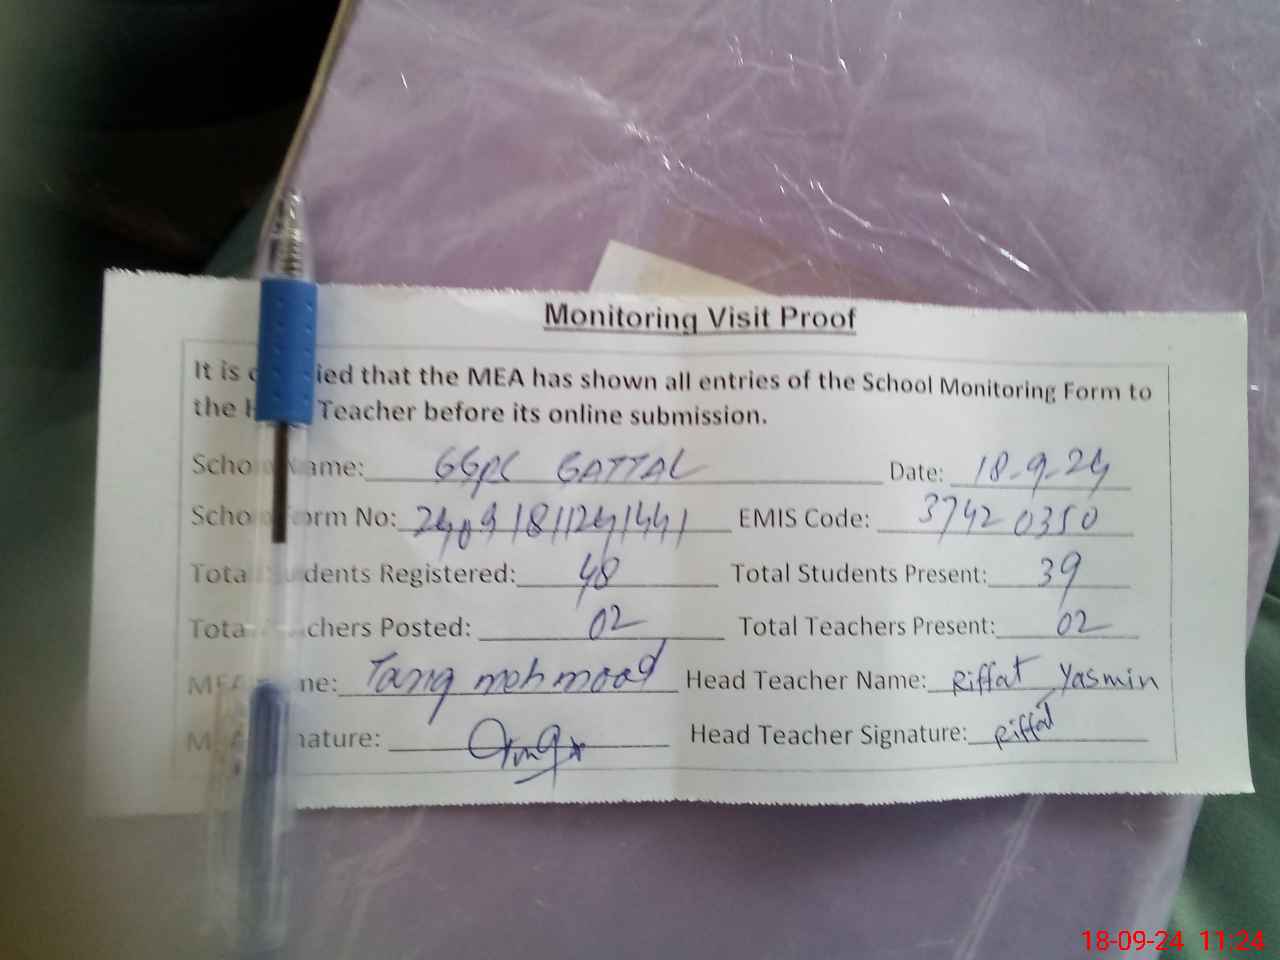 Monitoring Visit Proof
It is ied that the MEA has shown all entries of the School Monitoring Form to
the Teacher before its online submission.
Scho ame: GGPS GATTAL Date: 18-9-24
Scho orm No: EMIS Code: 37420350
Tota dents Registered: 48 Total Students Present: 39
Tota chers Posted: 02 Total Teachers Present: 02
ME ne: Tariq mehmood Head Teacher Name: Riffat Yasmin
M nature: Head Teacher Signature: Riffat
18-09-24 11:24